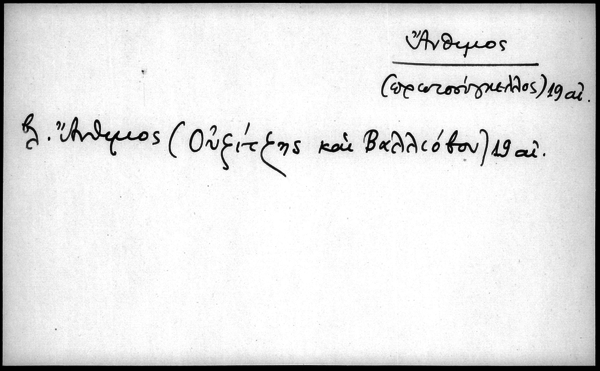 Ἄνθιμος
(πρωτοσύγκελλος) 19 αἰ.
βλ. Ἄνθιμος (Οὐξίτζης καὶ Βαλλιόβου) 19 αἰ.